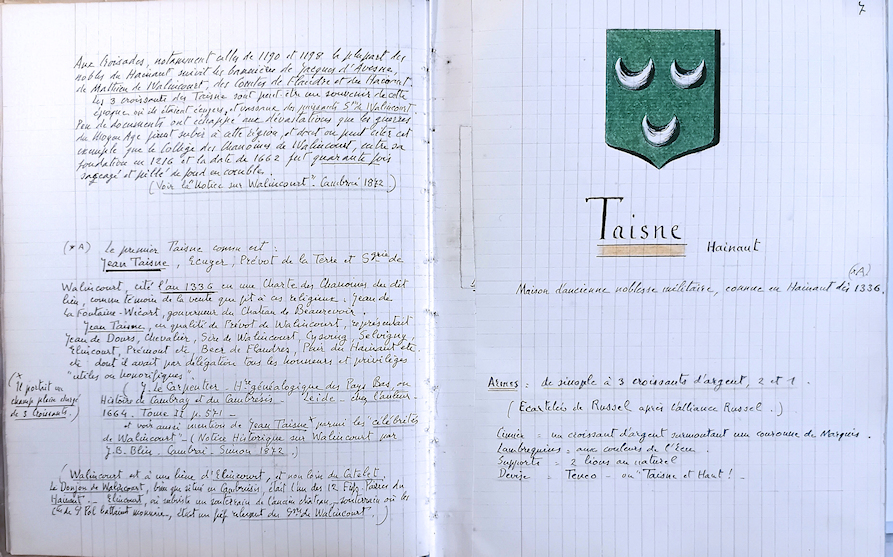 Aux Croisades, notamment celles de 1190 et 1198 la plupart des
nobles du Hainaut suivit les bannières de Jacques d'Avesne,
de Mathieu de Walincourt, des Comtes de Flandre et du Hainaut.
Les 3 croissants des Taisne sont peut être un souvenir de cette
époque où ils étaient écuyers, et vassaux des puissants Srs de Walincourt.
Peu de documents ont échappé aux dévastations que les guerres
du Moyen Age firent subir à cette région, et dont on peut citer cet
exemple que le Collège des Chanoines de Walincourt, entre sa
fondation en 1216 et la date de 1662 fut quarante fois
saccagé et pillé de fond en comble.
(Voir la "Notice sur Walincourt". Cambrai 1872)
(*A) Le premier Taisne connu est :
Jean Taisne, Ecuyer, Prévot de la Terre et Sgrie de
Walincourt, cité l'an 1336 en une Charte des Chanoines du dit
lieu, comme témoin de la vente que fit à ces religieux Jean de
la Fontaine-Wicart, gouverneur du Chateau de Beaurevoir.
Jean Taisne, en qualité de Prévot de Walincourt, représentait
Jean de Dours, Chevalier, Sire de Walincourt, Cysoing, Selvigny,
Elincourt, Prémont etc, Beer de Flandres, Pair du Hainaut etc.
etc dont il avait par délégation tous les honneurs et privilèges
"utiles ou honorifiques".
(*
Il portait un
champ plein chargé
de 3 Croissants.)
(J. le Carpentier - Hre généalogique des Pays Bas, ou
Histoire de Cambray et du Cambresis - Leide - chez l'auteur -
1664. Tome II p. 571 -
et voir aussi mention de Jean Taisne parmi les "célébrités
de Walincourt" - (Notice Historique sur Walincourt par
J.B. Blin. Cambrai. Simon 1872.)
(Walincourt est à une lieue d'Elincourt, et non loin du Catelet.
Le Donjon de Walincourt, bien que situé en Cambrésis, était l'un des 12 Fiefs Pairies du
Hainaut. - Elincourt, où subsiste un souterrain de l'ancien château, - souterrain où les
Ctes de St Pol battaient monnaie, était un fief relevant du Sgrs de Walincourt.)
7
Taisne
Hainaut
(*A)
Maison d'ancienne noblesse militaire, connue en Hainaut dès 1336.
Armes : de sinople à 3 croissants d'argent, 2 et 1.
(Ecartelés de Russel après l'alliance Russel.)
Cimier = un croissant d'argent surmontant une couronne de Marquis.
Lambrequins = aux couleurs de l'Ecu.
Supports = 2 lions au naturel
Devise = Teneo - ou "Taisne et Haut! -